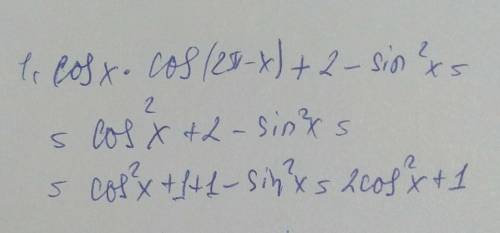 1. cos x · cos(2π-x) + 2 - sin²x =
= cos²x + 2 - sin²x =
= cos²x + 1 + 1 - sin²x = 2cos²x + 1